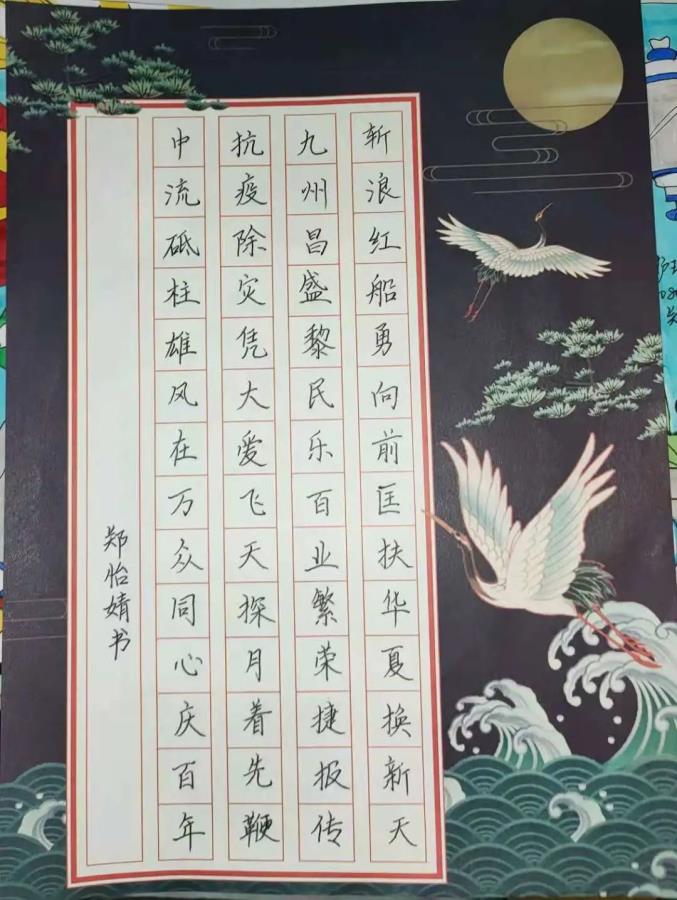 斩浪红船勇向前匡扶华夏换新天
九州昌盛黎民乐百业繁荣捷报传
抗疫除灾凭大爱飞天探月着先鞭
中流砥柱雄风在万众同心庆百年
郑怡婧书